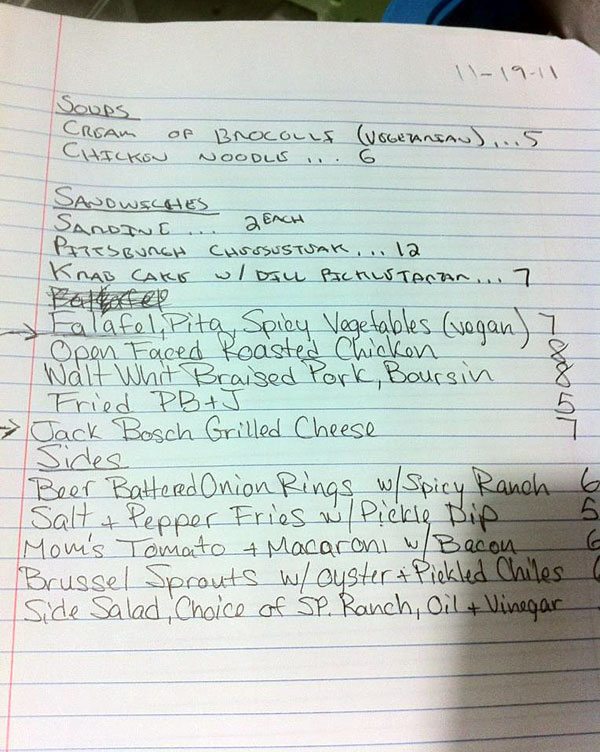 11-19-11
SOUPS
CREAM OF BROCOLLI (VEGETARIAN)...5
CHICKEN NOODLE ... 6
SANDWICHES
SARDINE ... 2 EACH
PITTSBURGH CHEESESTEAK...12
KRAB CAKE W/ DILL PICKLE TARTAR...7
Falafel, Pita, Spicy Vegetables (vegan) 7
Open Faced Roasted Chicken 8
Walt Whit Braised Pork, Boursin 8
Fried PB+J 5
Jack Bosch Grilled Cheese 7
Sides
Beer Battered Onion Rings w/Spicy Ranch 6
Salt + Pepper Fries w/Pickle Dip 5
Mom's Tomato + Macaroni w/Bacon 6
Brussel Sprouts w/ oyster + Pickled Chiles
Side Salad, Choice of SP. Ranch, Oil + Vinegar